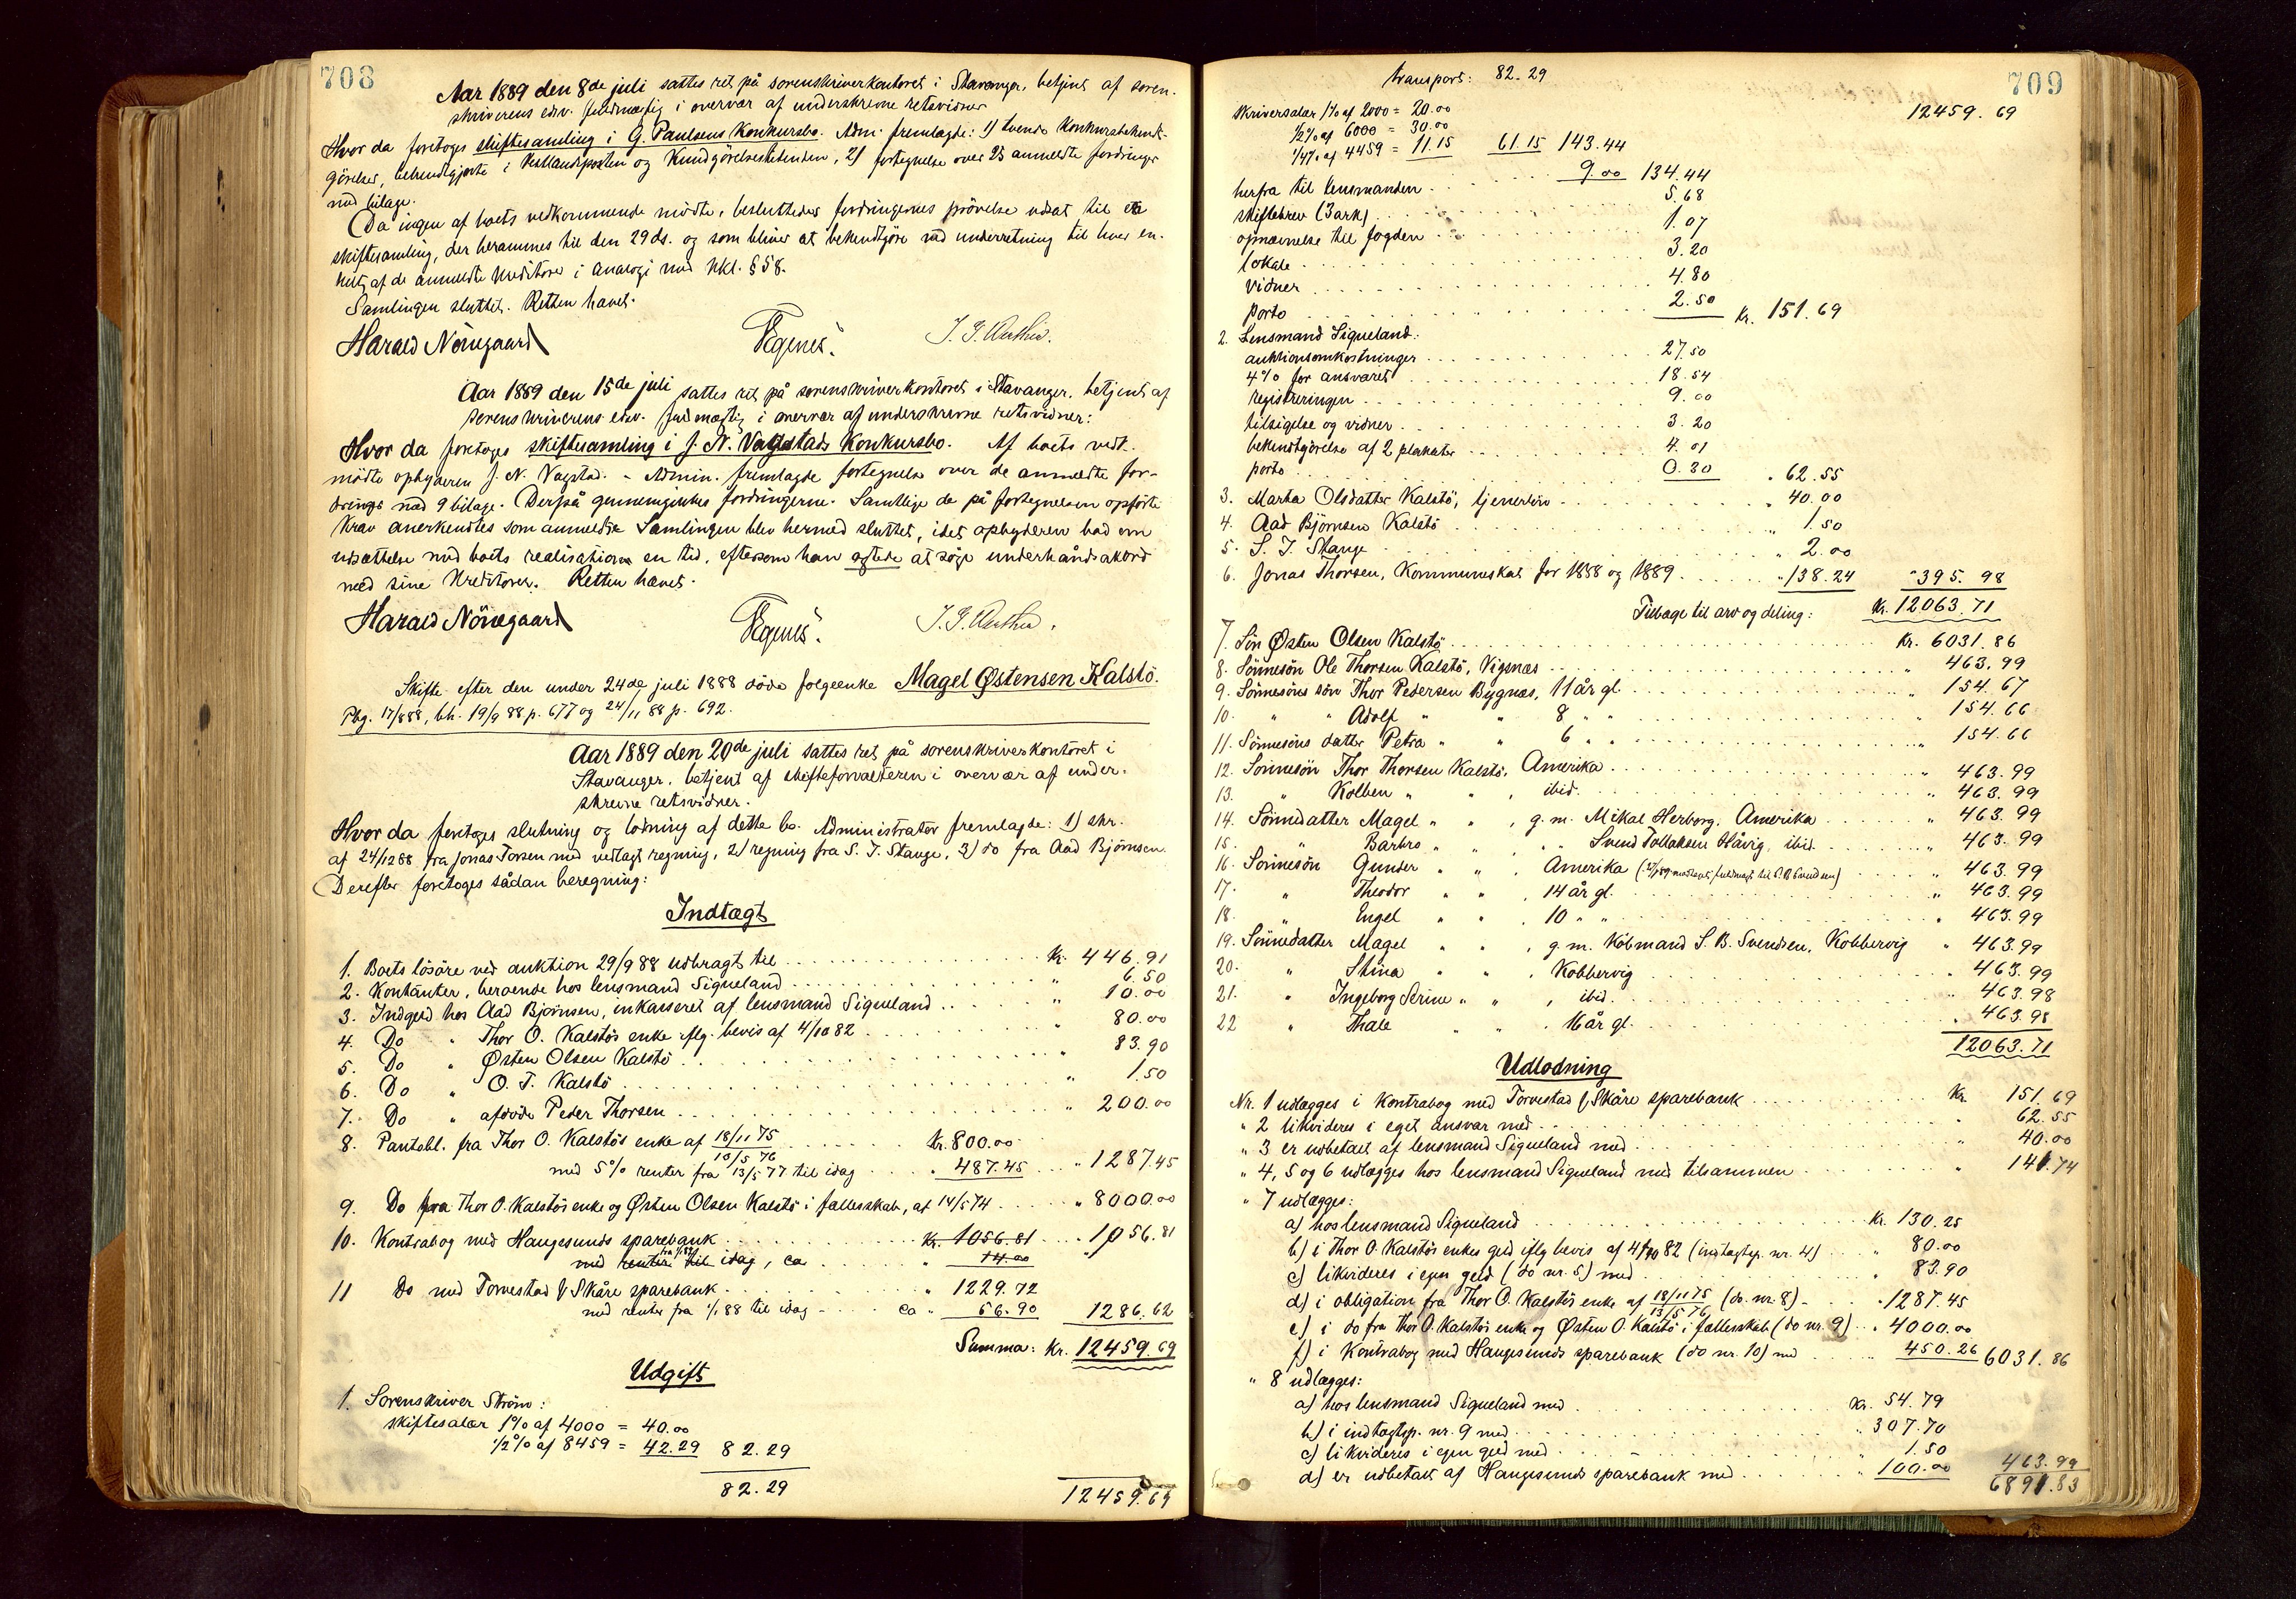 708
Aar 1889 den 8de juli sattes ret på sorenskriverkontoret i Stavanger, betjent af soren-
skriverens edsv. fuldmægtig i overvær af underskrevne retsvidner
Hvor da foretoges skiftesamling i G. Paulsens Konkursbo. Adm. fremlagde: 1) tvende Konkursbekendt-
görelser, bekendtgjorte i Vestlandsposten og Kundgörelsestidenden, 2) fortegnelse over 23 anmeldte fordringer
med bilage.
Da ingen af boets vedkommende mödte, besluttedes fordringernes prövelse udsat til en
skiftesamling, der berammes til den 29 ds. og som bliver at bekendtgjöre med underretning til hver en-
kelt af de anmeldte kreditorer i Analogi med kkl. § 58.
Samlingen sluttet. Retten hævet.
Harald Nörregaard
TEgenes.
J. J. Austbö.
Aar 1889 den 15de juli sattes ret på sorenskriverkontoret i Stavanger, betjent af
sorenskriverens edsv. fuldmægtig i overvær af underskrevne retsvidner:
Hvor da foretoges skiftesamling i J. N. Vagstads Konkursbo. Af boets vedk.
mödte opbyderen J. N. Vagstad. - Admin. fremlagde fortegnelse over de anmeldte for-
dringer med 9 bilage. Derpå gennemgikkes fordringerne. Samtlige de på fortegnelsen opförte
krav anerkendtes som anmeldte Samlingen blev hermed sluttet, idet opbyderen bad om
udsættelse med boets realisation en tid, eftersom han agtede at söge underhåndsakkord
med sine Kreditorer. Retten hævet.
Harald Nörregaard
TEgenes.
J. J. Austbö.
Skifte efter den under 24de juli 1888 döde folgeenke Magel Østensen Kalstö.
Pbg. 17/8 88, bh. 19/9 88 p. 677 og 24/11 88 p. 692.
Aar 1889 den 20de juli sattes ret på sorenskriverkontoret i
Stavanger, betjent af skifteforvalteren i overvær af under-
skrevne retsvidner.
Hvor da foretoges slutning og lodning af dette bo. Administrator fremlagde: 1) skr.
af 24/12 88 fra Jonas Torsen med vedlagt regning, 2) regning fra S. J. Stange, 3) do fra Aad Björnsen.
Derefter foretoges sådan beregning:
Indtægt
1. Boets lösöre ved auktion 29/9 88 udbragt til Kr. 446.91
2. Kontanter, beroende hos lensmand Siqueland " 6.50
3. Indgeld hos Aad Björnsen, inkasseret af lensmand Siqueland " 10.00
4. Do " Thor O. Kalstös enke iflg. bevis af 4/10 82 " 80.00
5. Do " Østen Olsen Kalstö " 83.90
6. Do " O. T. Kalstö " 1.50
7. Do " afdöde Peder Thorsen " 200.00
8. Pantobl. fra Thor O. Kalstös enke af 18/11 75 Kr. 800.00
13/5 76
med 5% renter fra 13/5 77 til idag " 487.45 " 1287.45
9. Do fra Thor O. Kalstös enke og Østen Olsen Kalstö i fællesskab, af 14/5 74 " 8000.00
10. Kontrabog med Haugesunds sparebank Kr. 1056.81 " 1056.81
med renter fra 1/1 89 til idag, ca " 14.00
11 Do med Torvestad & Skåre sparebank " 1229.72
med renter fra 1/1 88 til idag ca " 56.90 1286.62
Summa: Kr. 12459.69
Udgift
1. Sorenskriver Ström:
skiftesalær 1% af 4000 = 40.00
1/2% af 8459 = 42.29 82.29
82.29 12459.69
709
transport: 82.29
12459.69
skriversalær 1% af 2000 = 20.00
1/2% af 6000 = 30.00
1/4% af 4459 = 11.15 61.15 143.44
herfra til lensmanden 9.00 134.44
skiftebrev (3 ark) 5.68
opnævnelse til fogden 1.07
lokale 3.20
vidner 4.80
porto 2.50 Kr. 151.69
2. Lensmand Siqueland:
auktionsomkostninger 27.50
4% for ansvaret 18.54
registreringen 9.00
tilsigelse og vidner 3.20
bekendtgörelse af 2 plakater 4.01
porto 0.30 " 62.55
3. Marta Olsdatter Kalstö, tjenerlön " 40.00
4. Aad Björnsen Kalstö " 1.50
5. S. J. Stange " 2.00
6. Jonas Thorsen, Kommuneskat for 1888 og 1889 " 138.24 " 395.98
Tilbage til arv og deling: Kr. 12063.71
7. Sön Østen Olsen Kalstö Kr. 6031.86
8. Sönnesön Ole Thorsen Kalstö, Vigsnæs " 463.99
9. Sönnesöns sön Thor Pedersen Bygnæs, 11 år gl. " 154.67
10. " " Adolf " " 8 " " 154.66
11. Sönnesöns datter Petra " " 6 " " 154.66
12. Sönnesön Thor Thorsen Kalstö, Amerika " 463.99
13. " Kolben " " , ibid. " 463.99
14. Sönnedatter Magel " " , g. m. Mikal Herborg, Amerika " 463.99
15. " Barbro " " , " " Svend Tollaksen Håvig, ibid. " 463.99
16. Sönnesön Gunder " " , Amerika " 463.99
17. " Theodor " " , 14 år gl. " 463.99
18. " Engel " " , 10 " " " 463.99
19. Sönnedatter Magel " " , g. m. Köbmand S. B. Svendsen, Kobbervig " 463.99
20. " Stina " " , Kobbervig " 463.99
21. " Ingeborg Serine " " , ibid. " 463.98
22 " Thale " " , 16 år gl. " 463.98
12063.71
Udlodning
Nr. 1 udlægges i Kontrabog med Torvestad & Skåre sparebank Kr. 151.69
" 2 likvideres i eget ansvar med " 62.55
" 3 er udbetalt af lensmand Siqueland med " 40.00
" 4, 5 og 6 udlægges hos lensmand Siqueland med tilsammen " 141.74
" 7 udlægges:
a) hos lensmand Siqueland Kr. 130.25
b) i Thor O. Kalstös enkes geld iflg bevis af 4/10 82 (indtægtsp. nr. 4) " 80.00
c) likvideres i egen geld (do nr. 5) med " 83.90
d) i obligation fra Thor O. Kalstös enke af 18/11 75 (do. nr. 8) " 1287.45
13/5 76
e) i do fra Thor O. Kalstös enke og Østen O. Kalstö i fællesskab (do nr. 9) " 4000.00
f) i Kontrabog med Haugesunds sparebank (do nr. 10) med " 450.26 6031.86
" 8 udlægges:
a) hos lensmand Siqueland med Kr. 54.79
b) i indtægtsp. nr. 9 med " 307.70
c) likvideres i egen geld med " 1.50
d) er udbetalt af Haugesunds sparebank med " 100.00 463.99
6891.83